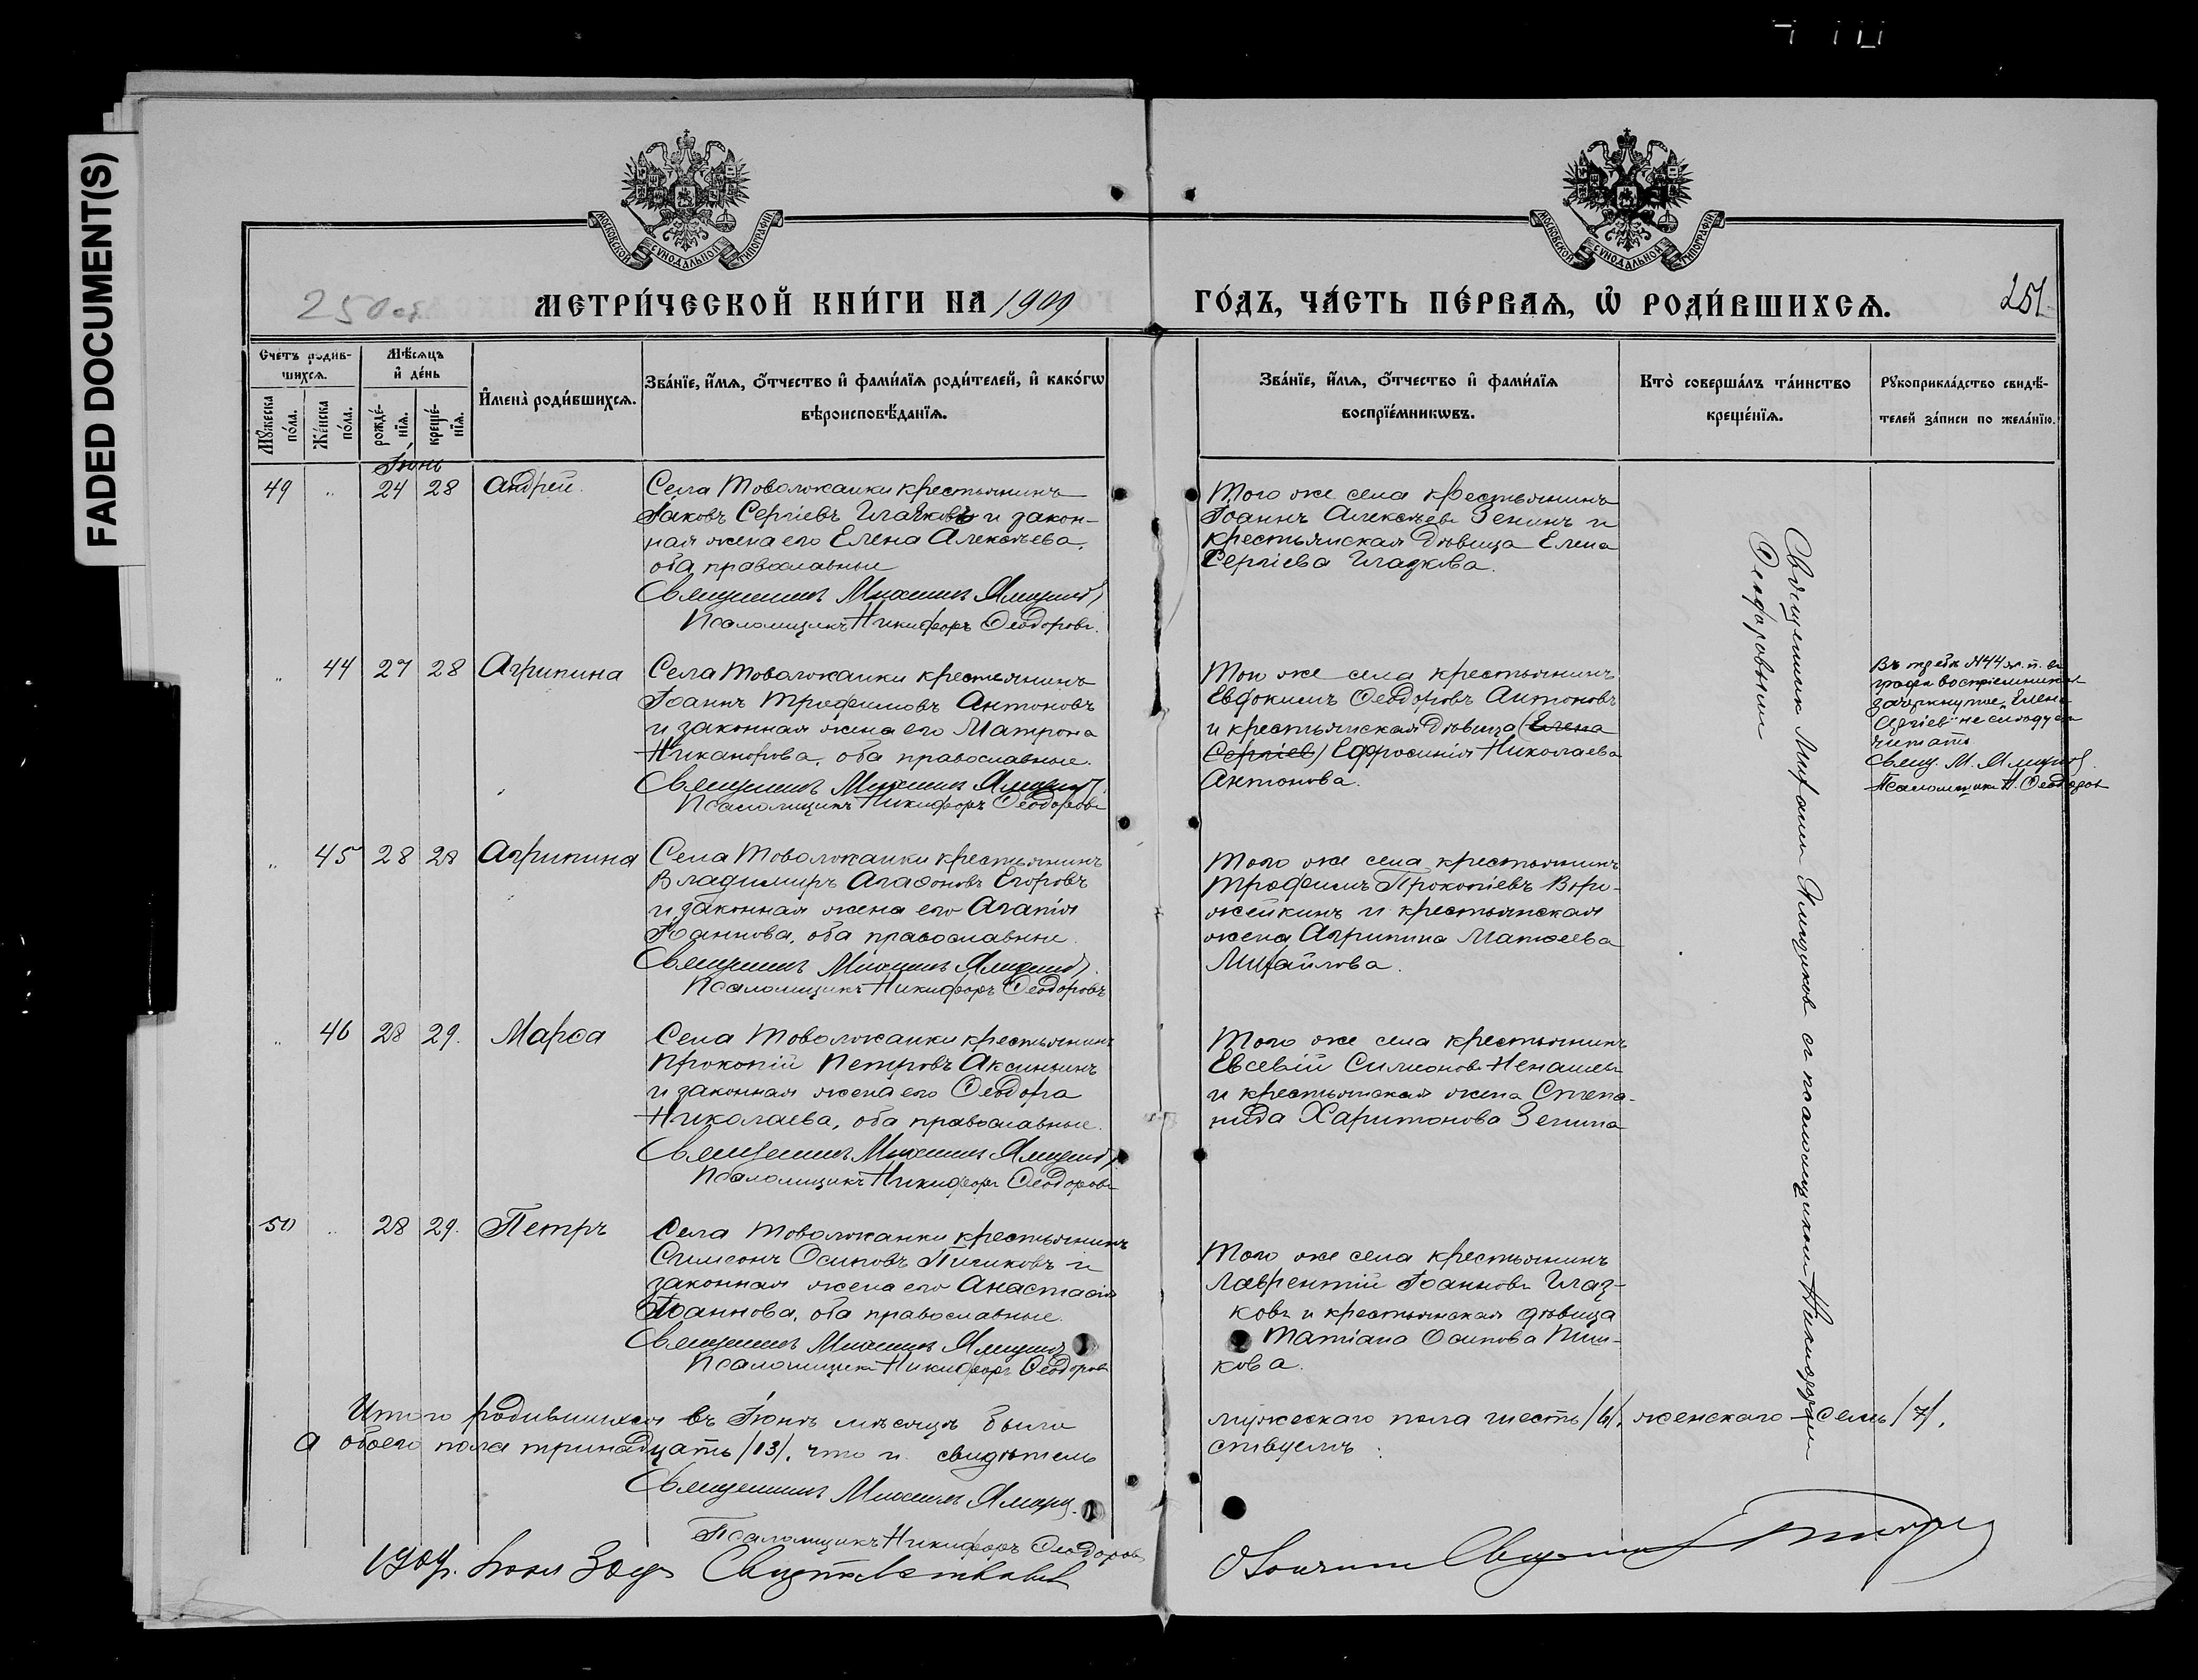 FADED DOCUMENT(S)
МОСКОВСКОЙ СѴНОДАЛЬНОЙ ТИПОГРАФІИ
МОСКОВСКОЙ СѴНОДАЛЬНОЙ ТИПОГРАФІИ
250 об.
МЕТРИ́ЧЕСКОЙ КНИ́ГИ НА 1909
ГО́ДЪ, ЧА́СТЬ ПЕ́РВАѦ, Ѡ҆ РОДИ́ВШИХСѦ.
251
Сче́тъ родив-
шихсѧ.
Мꙋ́жеска по́ла.
Же́нска по́ла.
Мѣ́сѧцъ
и҆ де́нь
рожде́-
нїѧ.
креще́-
нїѧ.
И҆мена̀ роди́вшихсѧ.
Зва́нїе, и҆́мѧ, ѻ҆́тчество и҆ фами́лїѧ роди́телей, и҆ како́гѡ
вѣроисповѣ́данїѧ.
Зва́нїе, и҆́мѧ, ѻ҆́тчество и҆ фами́лїѧ
воспрїе́мникѡвъ.
Кто̀ соверша́лъ та́инство
креще́нїѧ.
Рꙋкоприкла́дство свидѣ́-
телей за́писи по жела́нїю.
Іюнь
49 " 24 28 Андрей
Села Товолжанки крестьянинъ
Іаковъ Сергіевъ Глазковъ и закон-
ная жена его Елена Алексѣева,
оба православные
Священникъ Михаилъ Ямщиковъ
Псаломщикъ Никифоръ Ѳеодоровъ.
Того же села крестьянинъ
Іоаннъ Алексѣевъ Зенинъ и
крестьянская дѣвица Елена
Сергіева Глазкова.
Священник Михаил Ямщиков с псаломщиком Никифором
Ѳеодоровым
" 44 27 28 Агрипина
Села Товолжанки крестьянинъ
Іоаннъ Трофимовъ Антоновъ
и законная жена его Матрона
Никанорова, оба православные.
Священникъ Михаилъ Ямщиковъ
Псаломщикъ Никифоръ Ѳеодоровъ
Того же села крестьянинъ
Евдокимъ Ѳеодоровъ Антоновъ
и крестьянская дѣвица (Елена
Сергіев) Ефросинія Николаева
Антонова.
№44 ж. п. въ
графѣ воспріемниковъ
зачеркнутое „Елена
Сергіев" не слѣдуетъ
читать
Свящ. М. Ямщиковъ.
Псаломщикъ Н. Ѳеодоров
" 45 28 28 Агрипина
Села Товолжанки крестьянинъ
Владимиръ Агаѳоновъ Егоровъ
и законная жена его Агапія
Іоаннова, оба православные.
Священникъ Михаилъ Ямщиковъ.
Псаломщикъ Никифоръ Ѳеодоровъ
Того же села крестьянинъ
Трофимъ Прокопіевъ Воро-
жейкинъ и крестьянская
жена Агрипина Матѳеева
Михайлова.
" 46 28 29. Марѳа
Села Товолжанки крестьянинъ
Прокопій Петровъ Аксиньинъ
и законная жена его Ѳеодора
Николаева, оба православные.
Священникъ Михаилъ Ямщиковъ
Псаломщикъ Никифоръ Ѳеодоровъ
Того же села крестьянинъ
Евсевій Симеоновъ Ненашевъ
и крестьянская жена Степа-
нида Харитонова Зенина
50 " 28 29. Петръ
Села Товолжанки крестьянинъ
Симеонъ Осиповъ и
законная жена его Анастасія
Іоаннова, оба православные.
Священникъ Михаилъ Ямщиковъ
Псаломщикъ Никифоръ Ѳеодоровъ
Того же села крестьянинъ
Лаврентій Іоанновъ Глаз-
ковъ и крестьянская дѣвица
Татіана Осипова
кова.
Итого родившихся въ Іюнѣ мѣсяцѣ было
мужескаго пола шесть /6/, женскаго – семь /7/,
а обоего пола тринадцать /13/, что и свидѣтель
ствуемъ:
Священникъ Михаилъ Ямщик.
Псаломщикъ Никифоръ Ѳеодоровъ
1909 г. Свидѣтельствовалъ